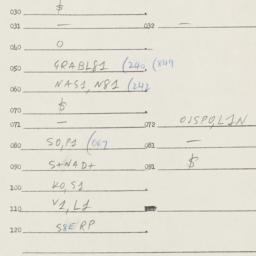 030 $
031 — 032 —
040 O
050 GRABL81 (240,
060 NAS1, N81 (242
070 $
071 — 072 DISPO,L1N
080 SO,P1 (067 081 —
090 S+NAD+ 091 $
100 KO,S1
110 V1,L1
120 S8ERP